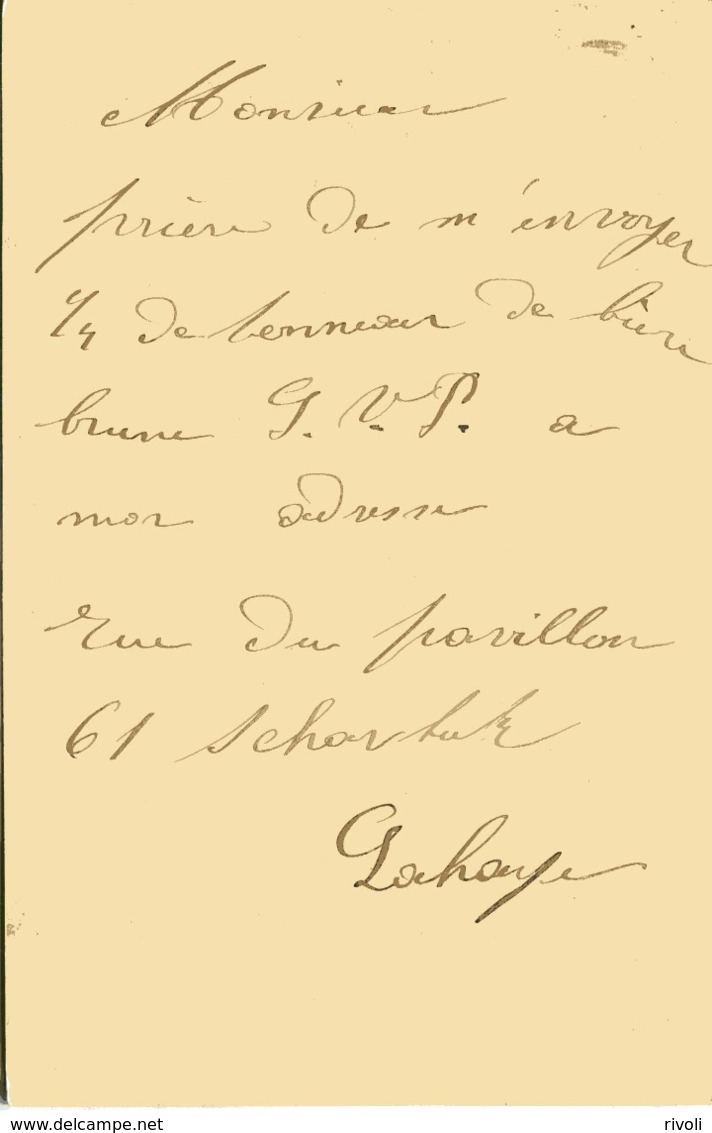 Monsieur
prière de m'envoyer
1/4 de tonneau de bière
brune G. V. P. a
mon adresse
rue du pavillon
61
Lahaye
www.delcampe.net
rivoli